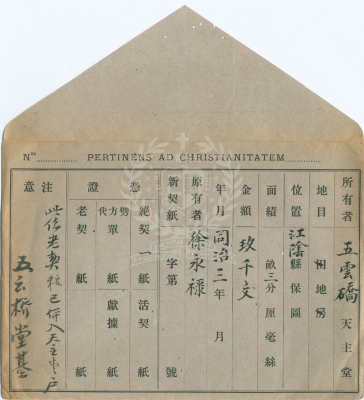 Nº PERTINENS AD CHRISTIANITATEM
所有者 五雲橋 天主堂
地目 田地房
位置 江陰縣 保 圖
面績 畝三分 厘 毫 絲
金額 玖千文
年月 同治三年 月
原有者 徐永禄
新契紙 字第 號
憑證
絕契 一 紙 活契 紙
方單 代 勞 紙 獻據 紙
老契 紙 紙
注意
此係老契 據已併入天主堂戶
五云橋堂基